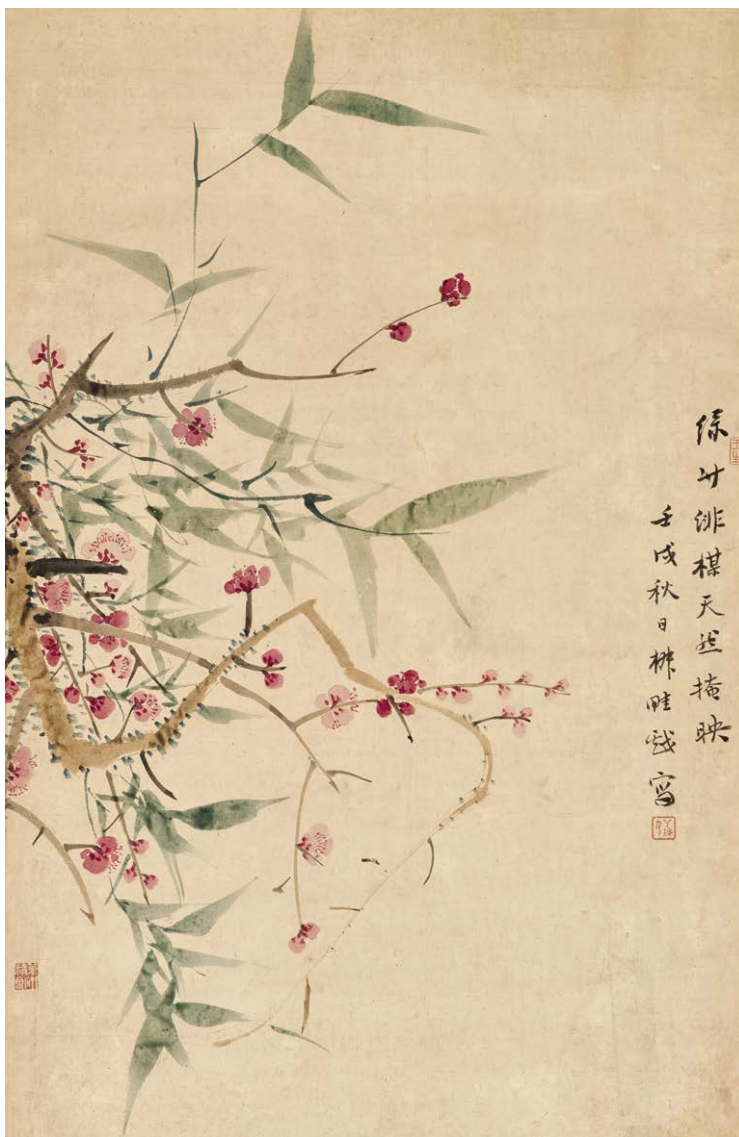 綠竹緋楳天然掩映
壬戌秋日椒畦戲寫